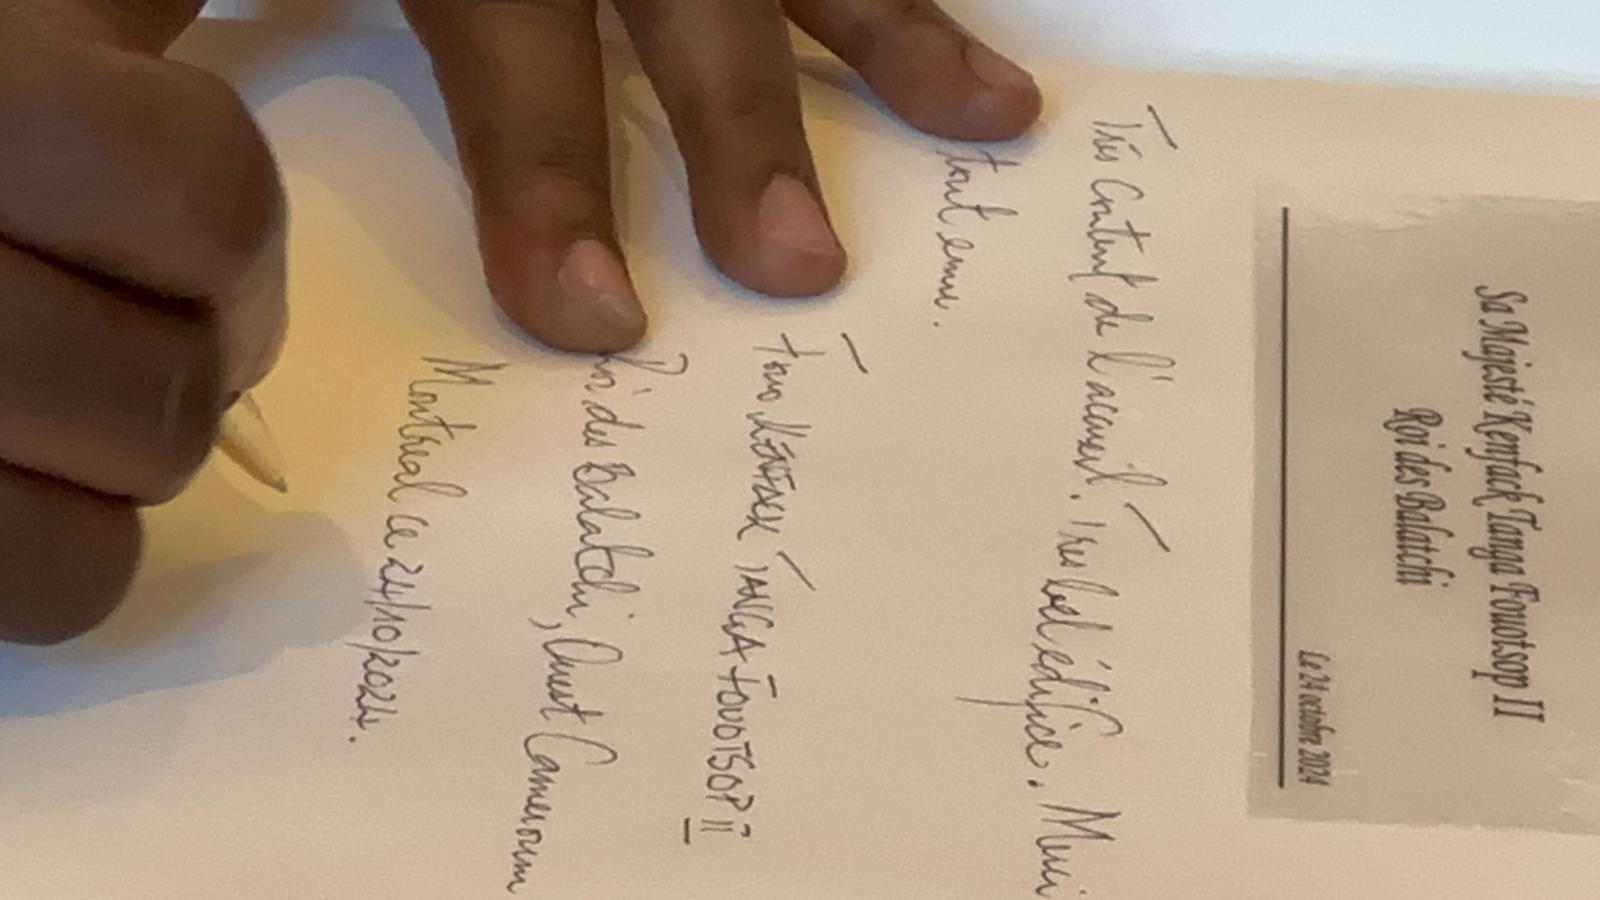 Sa Majesté Kenfack Tanga Fouotsop II
Roi des Balatchi
Le 24 octobre 2024
Très content de l'accueil. Très bel édifice. Merci
tout ému.
KENFACK TANGA-FOUOTSOP II
Roi des Balatchi, Ouest Cameroun
Montréal ce 24/10/2024.